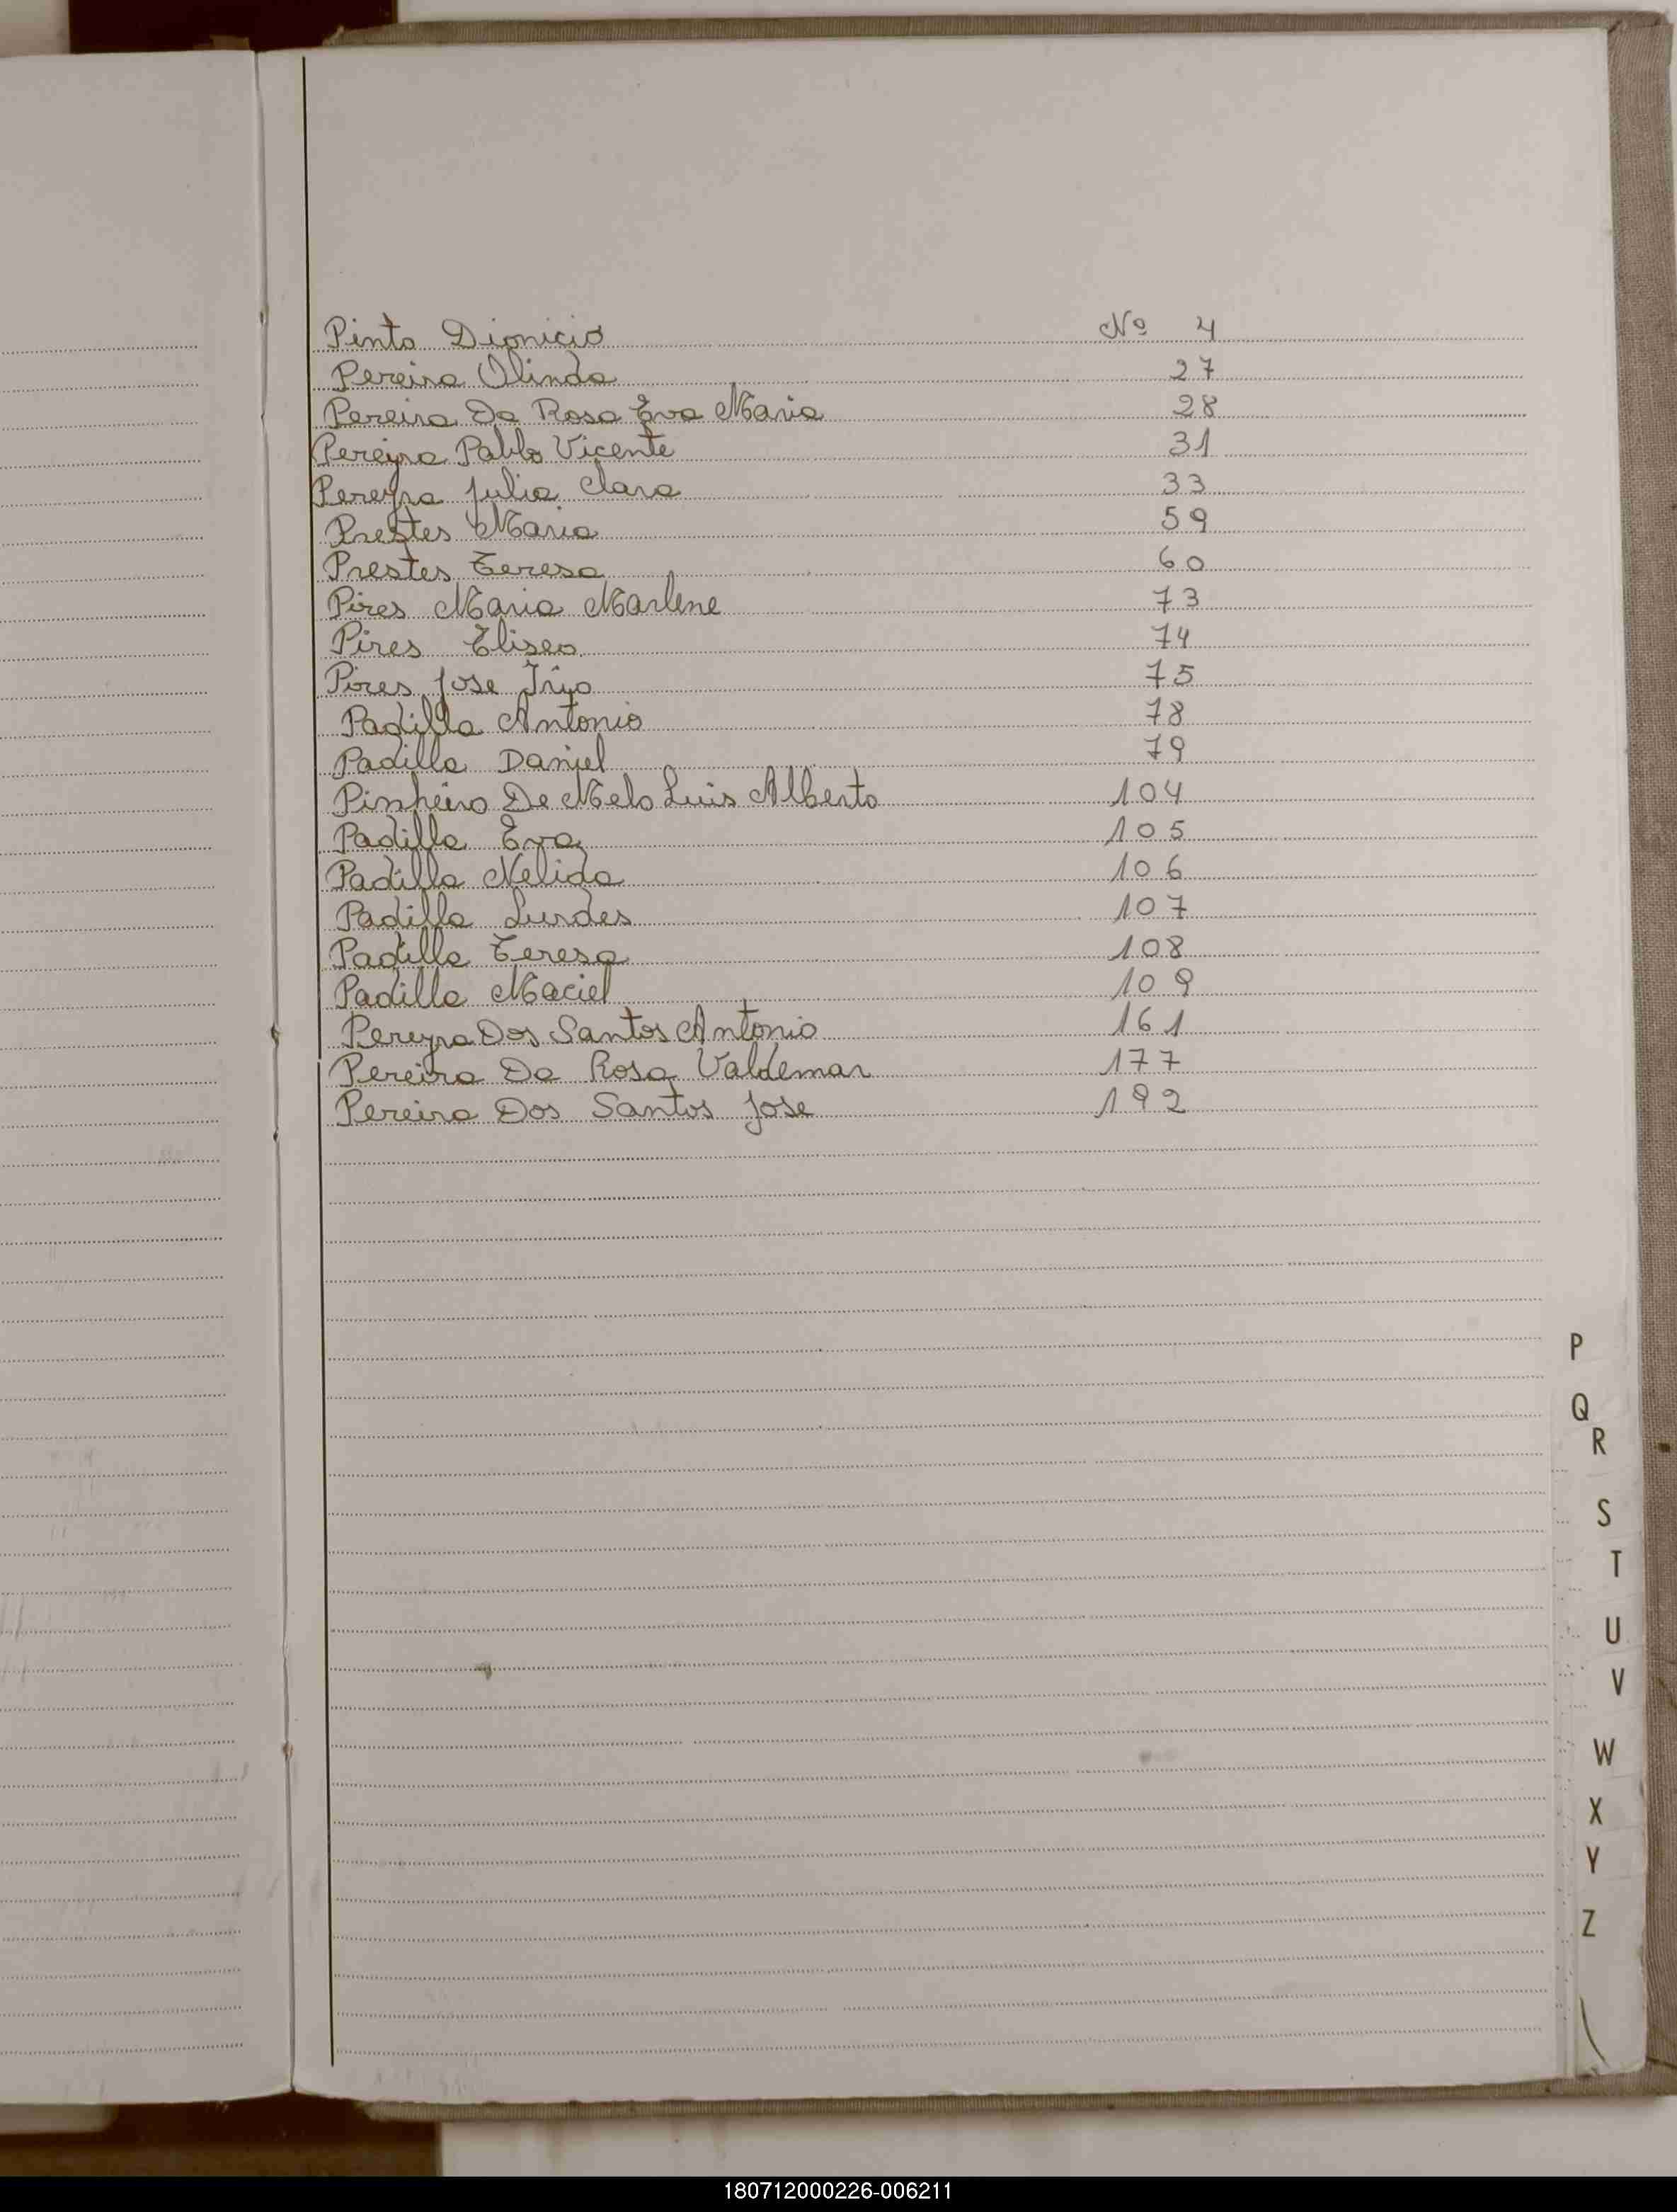 Pinto Dionicio Nº 4
Pereira Olinda 27
Pereira Da Rosa Eva Maria 28
Pereyra Pablo Vicente 31
Pereyra Julia Clara 33
Prestes Maria 59
Prestes Teresa 60
Pires Maria Marlene 73
Pires Eliseo 74
Pires Jose 75
Padilla Antonio 78
Padilla Daniel 79
Pinheiro De Melo Luis Alberto 104
Padilla Eva 105
Padilla Nelida 106
Padilla Lurdes 107
Padilla Teresa 108
Padilla Maciel 109
Pereyra Dos Santos Antonio 161
Pereira Da Rosa Valdemar 177
Pereira Dos Santos Jose 192
P
Q
R
S
T
U
V
W
X
Y
Z
180712000226-006211